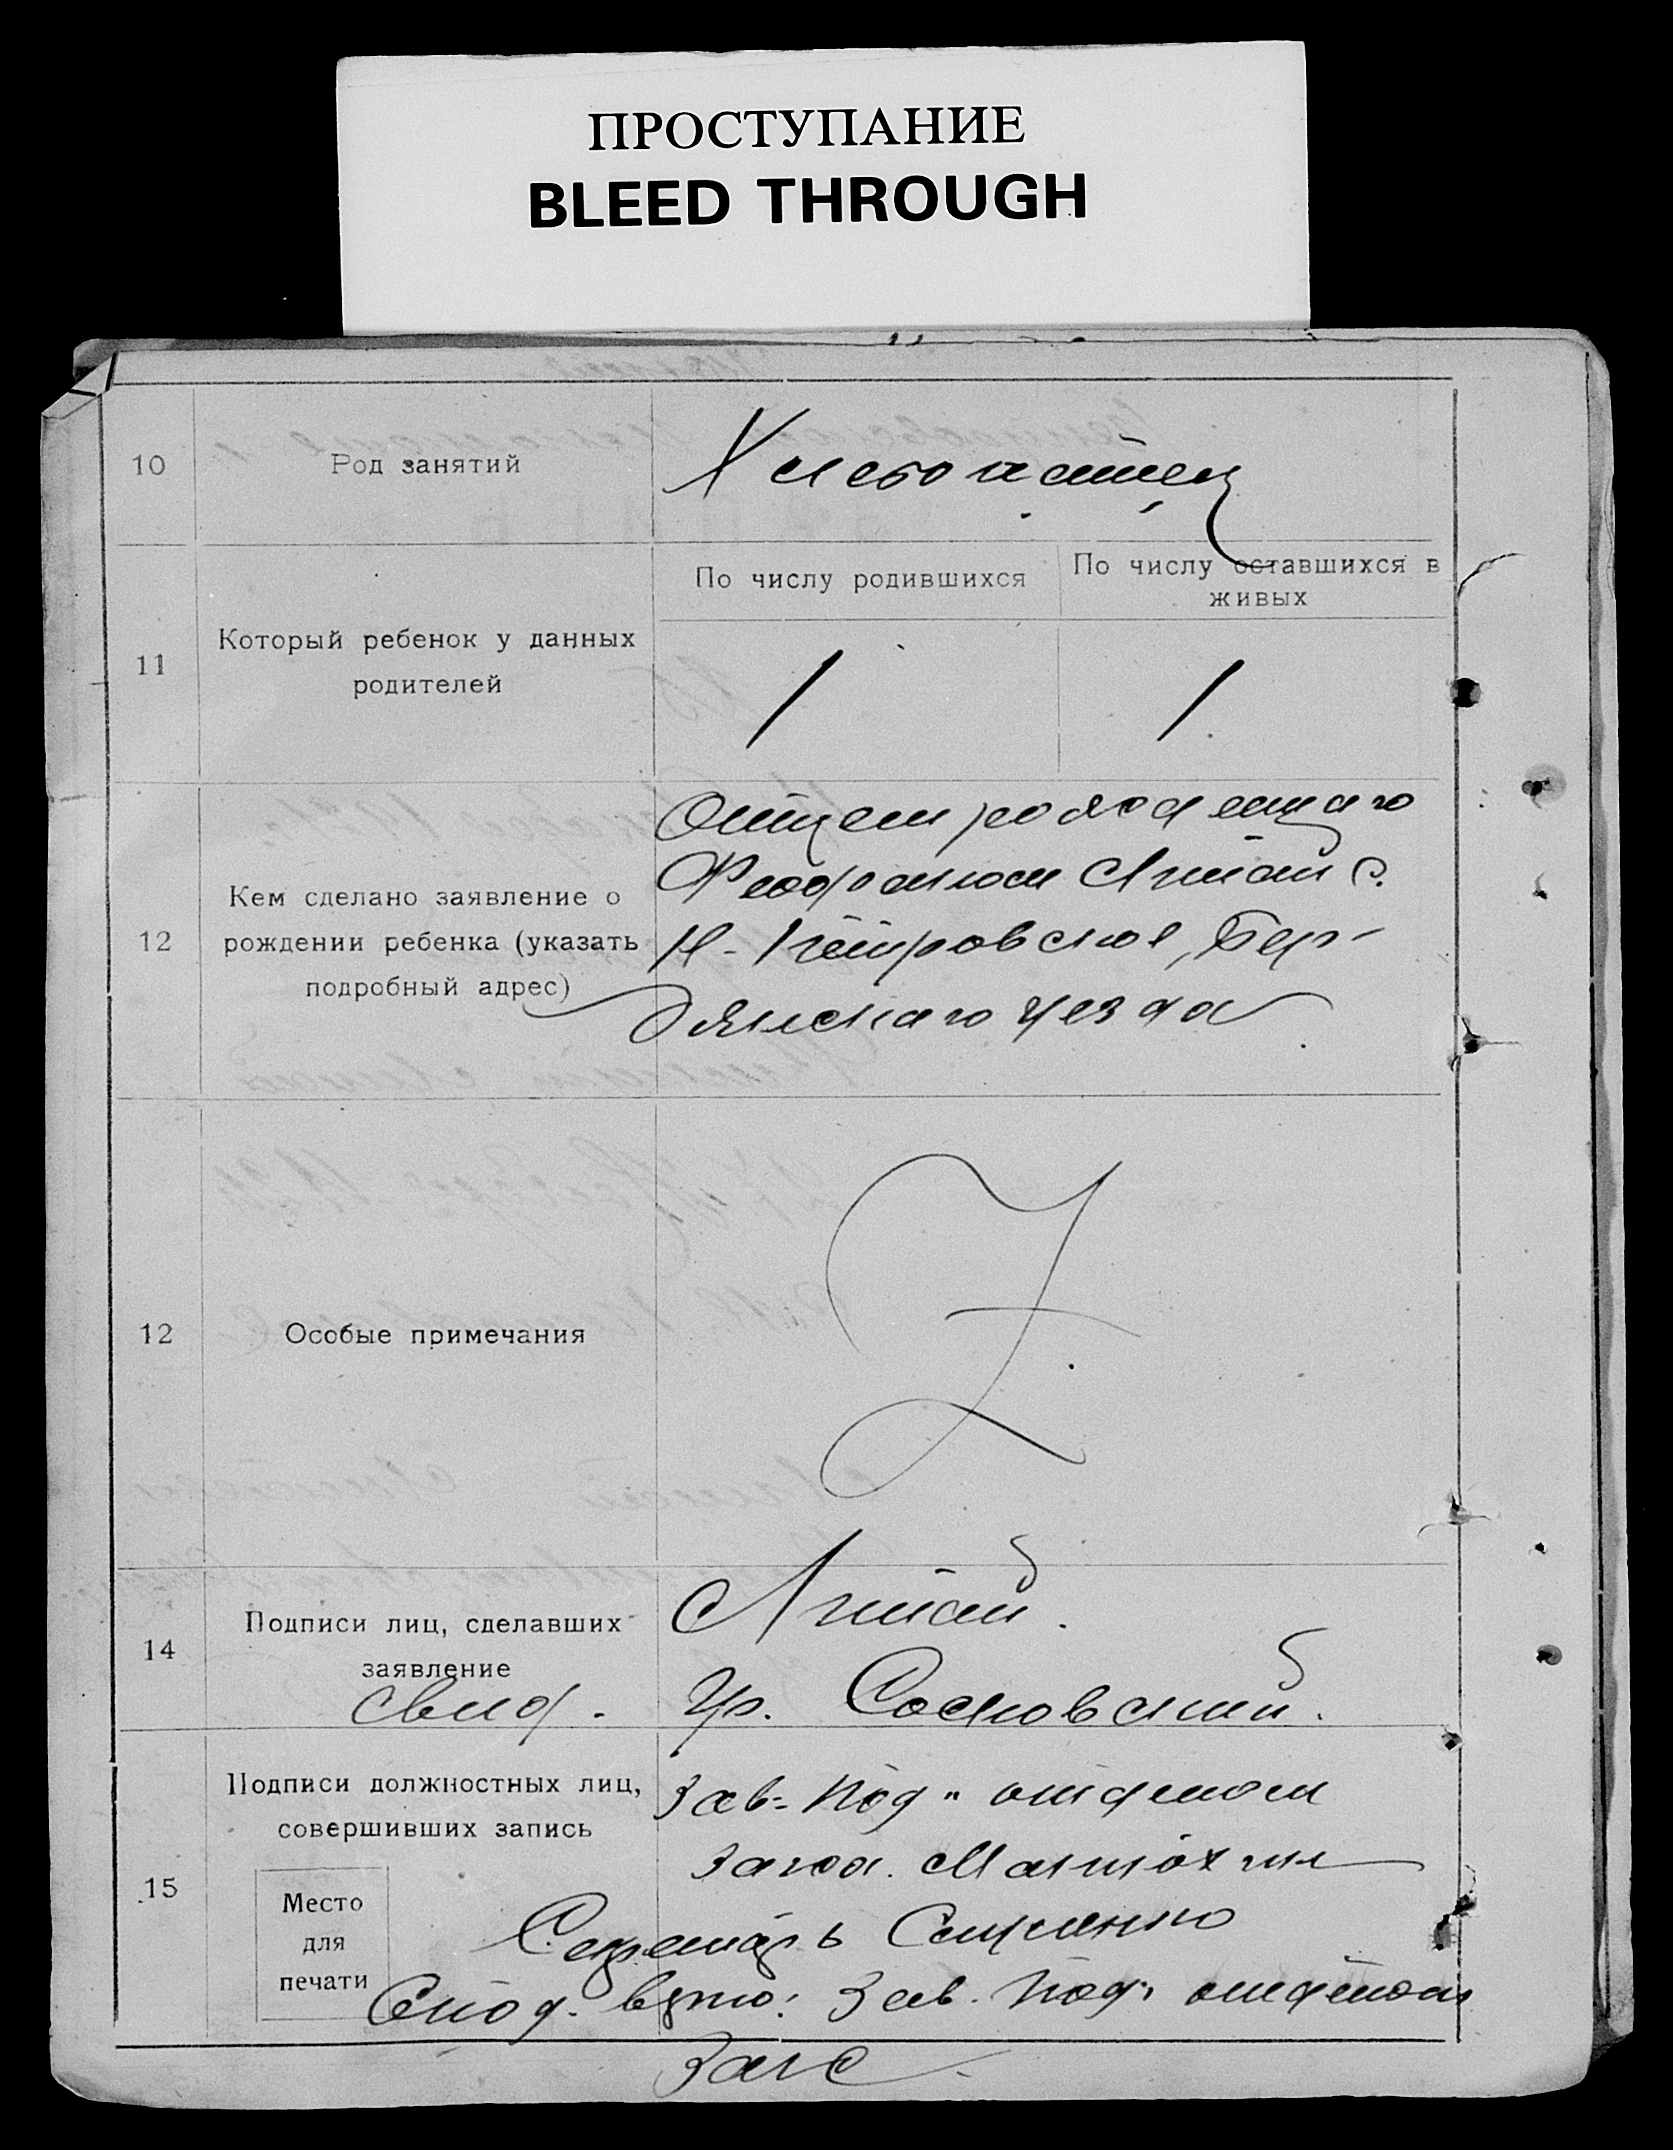 ПРОСТУПАНИЕ
BLEED THROUGH
10
Род занятий
Хлебопашец
11
Который ребенок у данных
родителей
По числу родившихся
По числу оставшихся в
живых
1
1
12
Кем сделано заявление о
рождении ребенка (указать
подробный адрес)
Отцем
с.
Н-Петровское, Бер-
дянскаго уезда
12
Особые примечания
14
Подписи лиц, сделавших
заявление
Свид.
Гр. Сосновский.
15
Подписи должностных лиц,
совершивших запись
Место
для
печати
Зав. Под. отделом
Секретарь
верно: Зав. Под. отделом
Загс